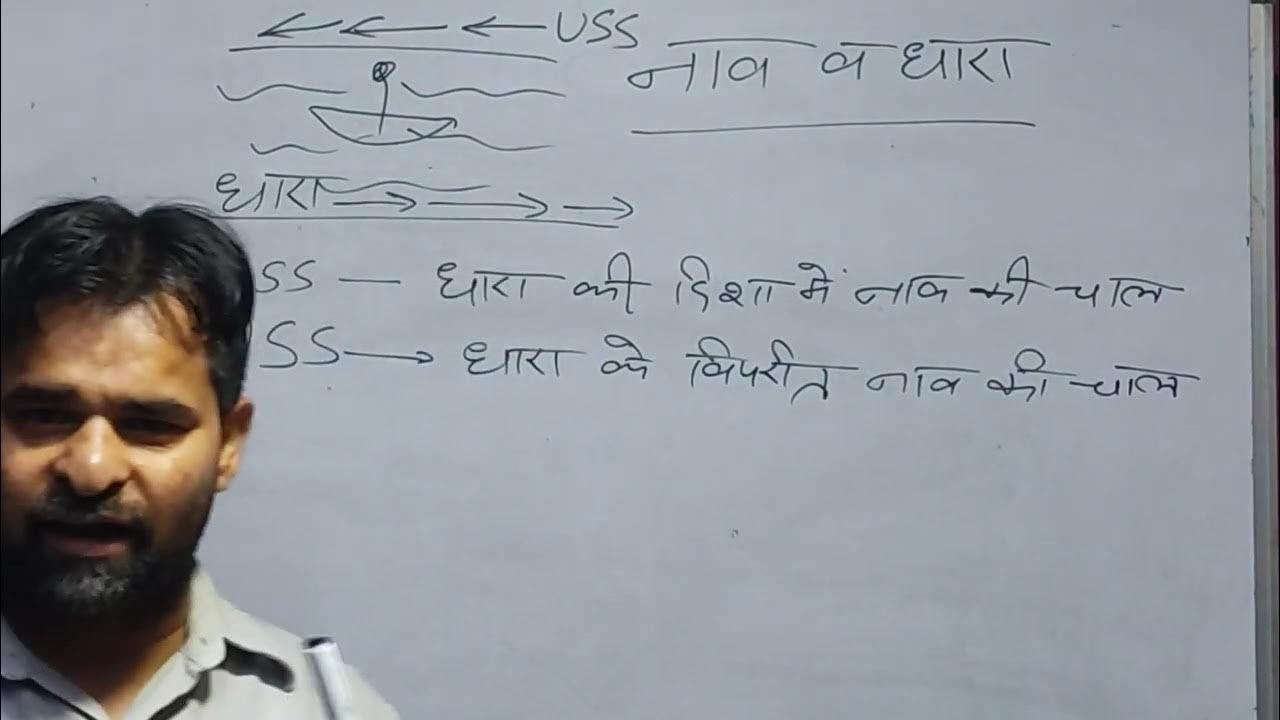 USS
नाव व धारा
धारा
SS — धारा की दिशा में नाव की चाल
SS → धारा के विपरीत नाव की चाल